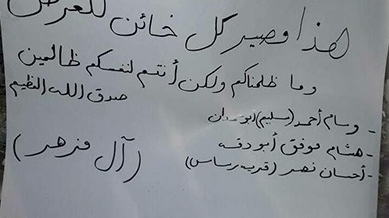 هذا مصير كل خائن للعرض
وما ظلمناكم ولكن أنتم لنفسكم ظالمين
صدق الله العظيم
- وسام أحمد (سليم) ابو
- هشام موفق أبو دقه
- أحسان نصر (قرب رساس)
(آل مزهر)